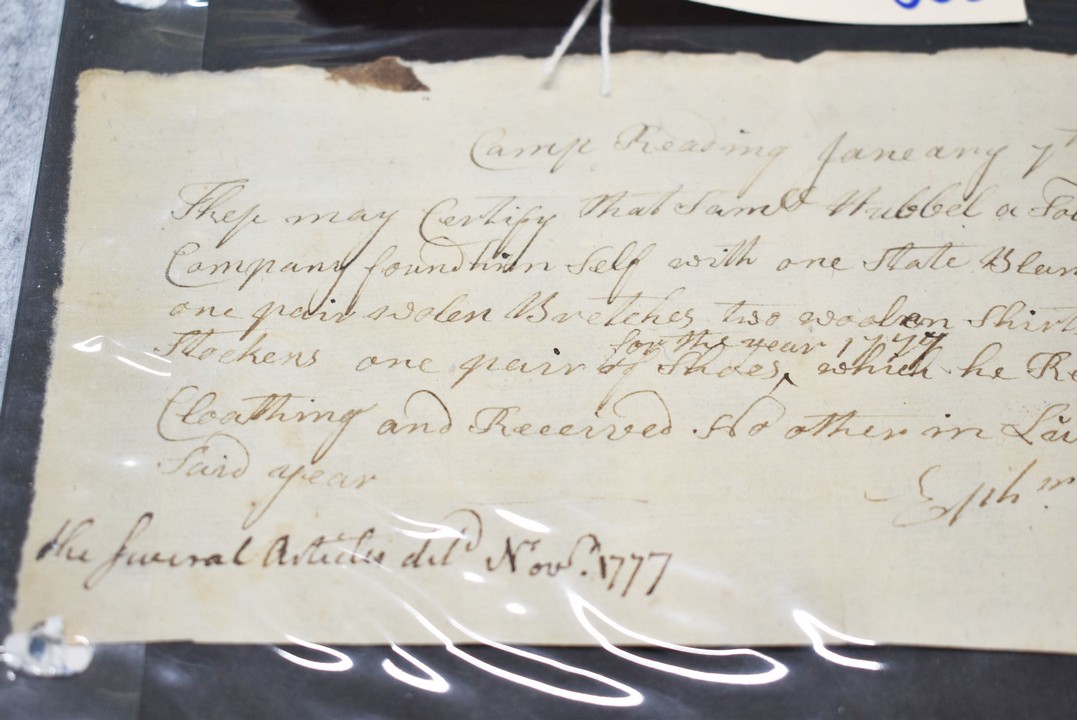 Camp Reading Janeary 7th
Thes may Certify that Saml Hubbel a
Company found him Self with one State Blan
one pair wolen Bretches two woolen Shirt
for the year 1777
Stockens one pair of Shoes, which he Re
Cloathing and Received No other in Liu
Said year
Ephm
the several Articles deld Novr. 1777